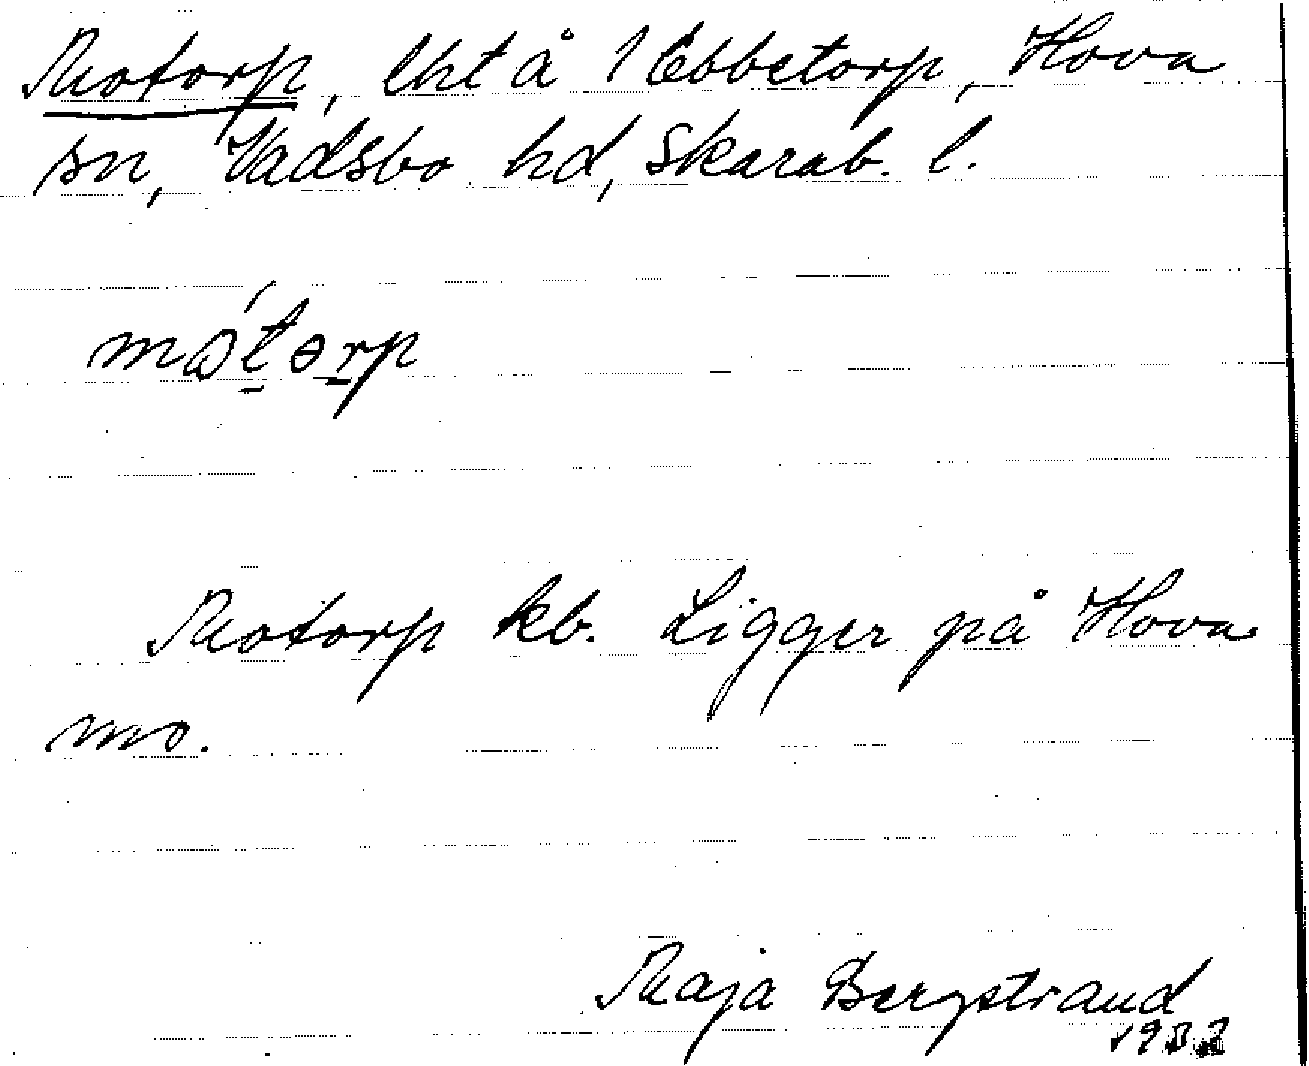 Motorp, lht å 1 Ebbetorp, Hova
sn, Vadsbo hd, Skarab. l.
mo´torp
Motorp kb. Ligger på Hova
mo.
Maja Bergstrand